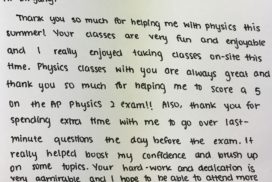 Thank you so much for helping me with physics this
summer! Your classes are very fun and enjoyable
and I really enjoyed taking classes on-site this
time. Physics classes with you are always great and
thank you so much for helping me to score a 5
on the AP Physics 2 exam!! Also, thank you for
spending extra time with me to go over last-
minute questions the day before the exam. It
really helped boost my confidence and brush up
on some topics. Your hard-work and dedication is
very admirable and I hope to be able to attend more